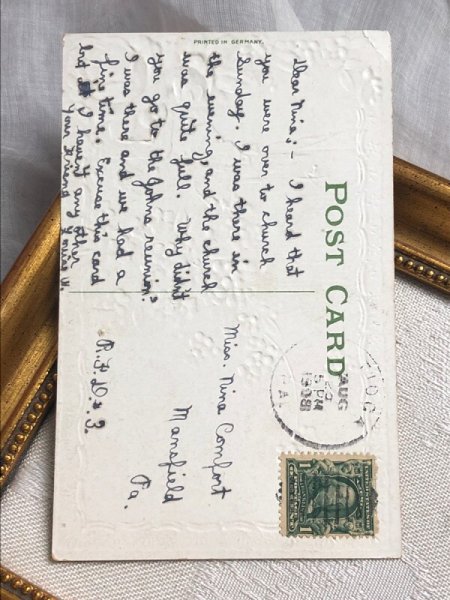 PRINTED IN GERMANY.
POST CARD
Dear Nina:- I heard that
you were over to church
Sunday. I was there in
the evening, and the church
was quite full. Why didn't
you go to the Johns reunion.
I was there and we had a
fine time. Excuse this card
but I haven't any other
Your friend
Miss. Nina Comfort
Mansfield
Pa.
R.F.D. # 3.
AUG
5 PM
1908
PA.
1
1